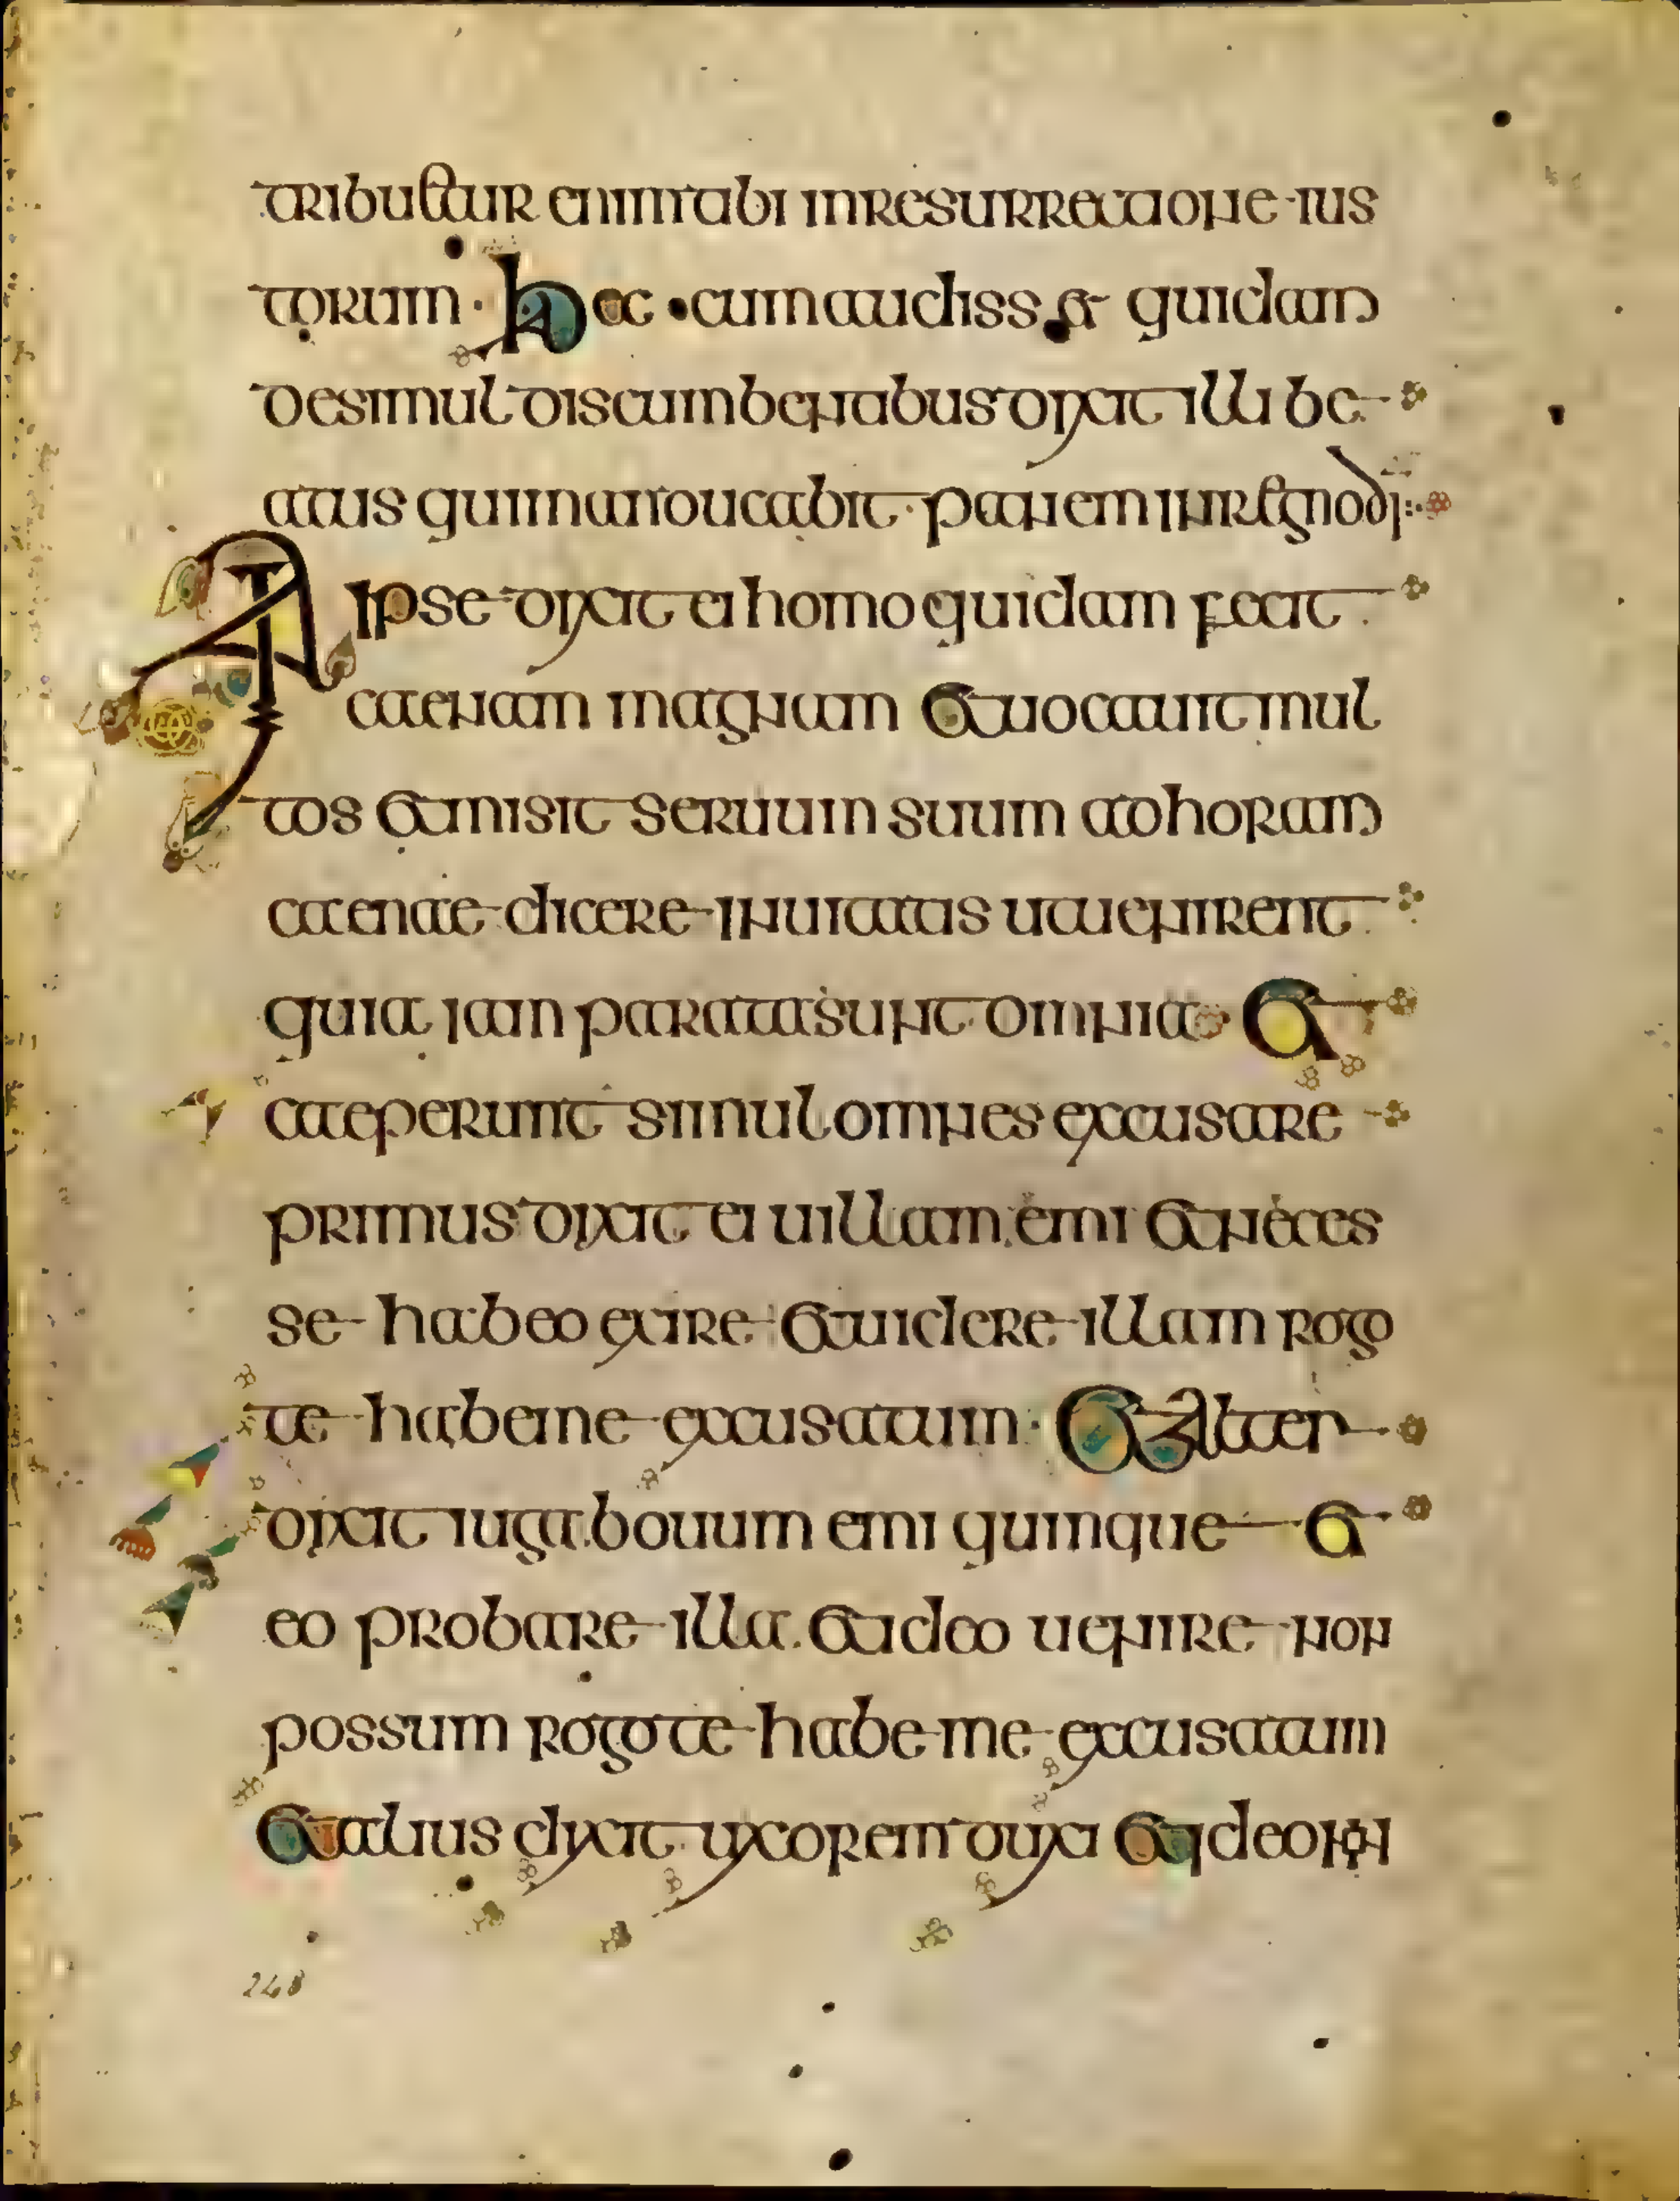 tribuetur enim tibi in resurrectione ius
torum · Haec · cum audisset quidam
de simul discumbentibus dixit illi be
atus qui manducabit · panem in regno di
At ipse dixit ei homo quidam fecit ·
caenam magnam et uocauit mul
tos et misit seruum suum ad horam
caenae dicere inuitatis ut uenirent ·
quia iam parata sunt omnia · et
caeperunt simul omnes excusare
primus dixit ei uillam emi et neces
se habeo exire et uidere illam rogo
te habe me excusatum · Et alter
dixit iuga bouum emi quinque et
eo probare illa · et ideo uenire non
possum rogo te habe me excusatum
Et alius dixit uxorem duxi et ideo non
248